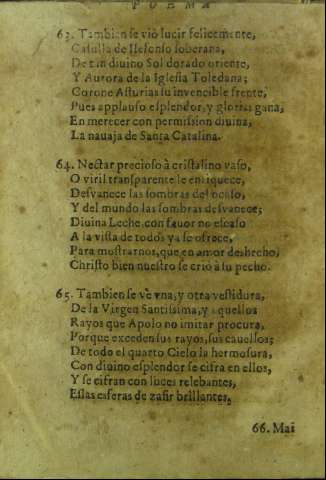 POEMA
63. Tambien se viò lucir felicemente,
Casulla de Ilefonso soberana,
De tan diuino Sol dorado oriente,
Y Aurora de la Iglesia Toledana;
Corone Asturias su invencible frente,
Pues applauso esplendor, y glorias gana,
En merecer con permission diuina,
La nauaja de Santa Catalina.
64. Nectar precioso à cristalino vaso,
O viril transparente le enriquece,
Desvanece las sombras del ocaso,
Y del mundo las sombras desvanece;
Diuina Leche con fauor no escaso
A la vista de todos ya se ofrece,
Para mostrarnos, que en amor deshecho,
Christo bien nuestro se criò à su pecho.
65. Tambien se vè vna, y otra vestidura,
De la Virgen Santissima, y aquellos
Rayos que Apolo no imitar procura,
Porque exceden sus rayos, sus cauellos;
De todo el quarto Cielo la hermosura,
Con diuino esplendor se cifra en ellos,
Y se cifran con luces relebantes,
Essas esferas de zafir brillantes,
66. Mai